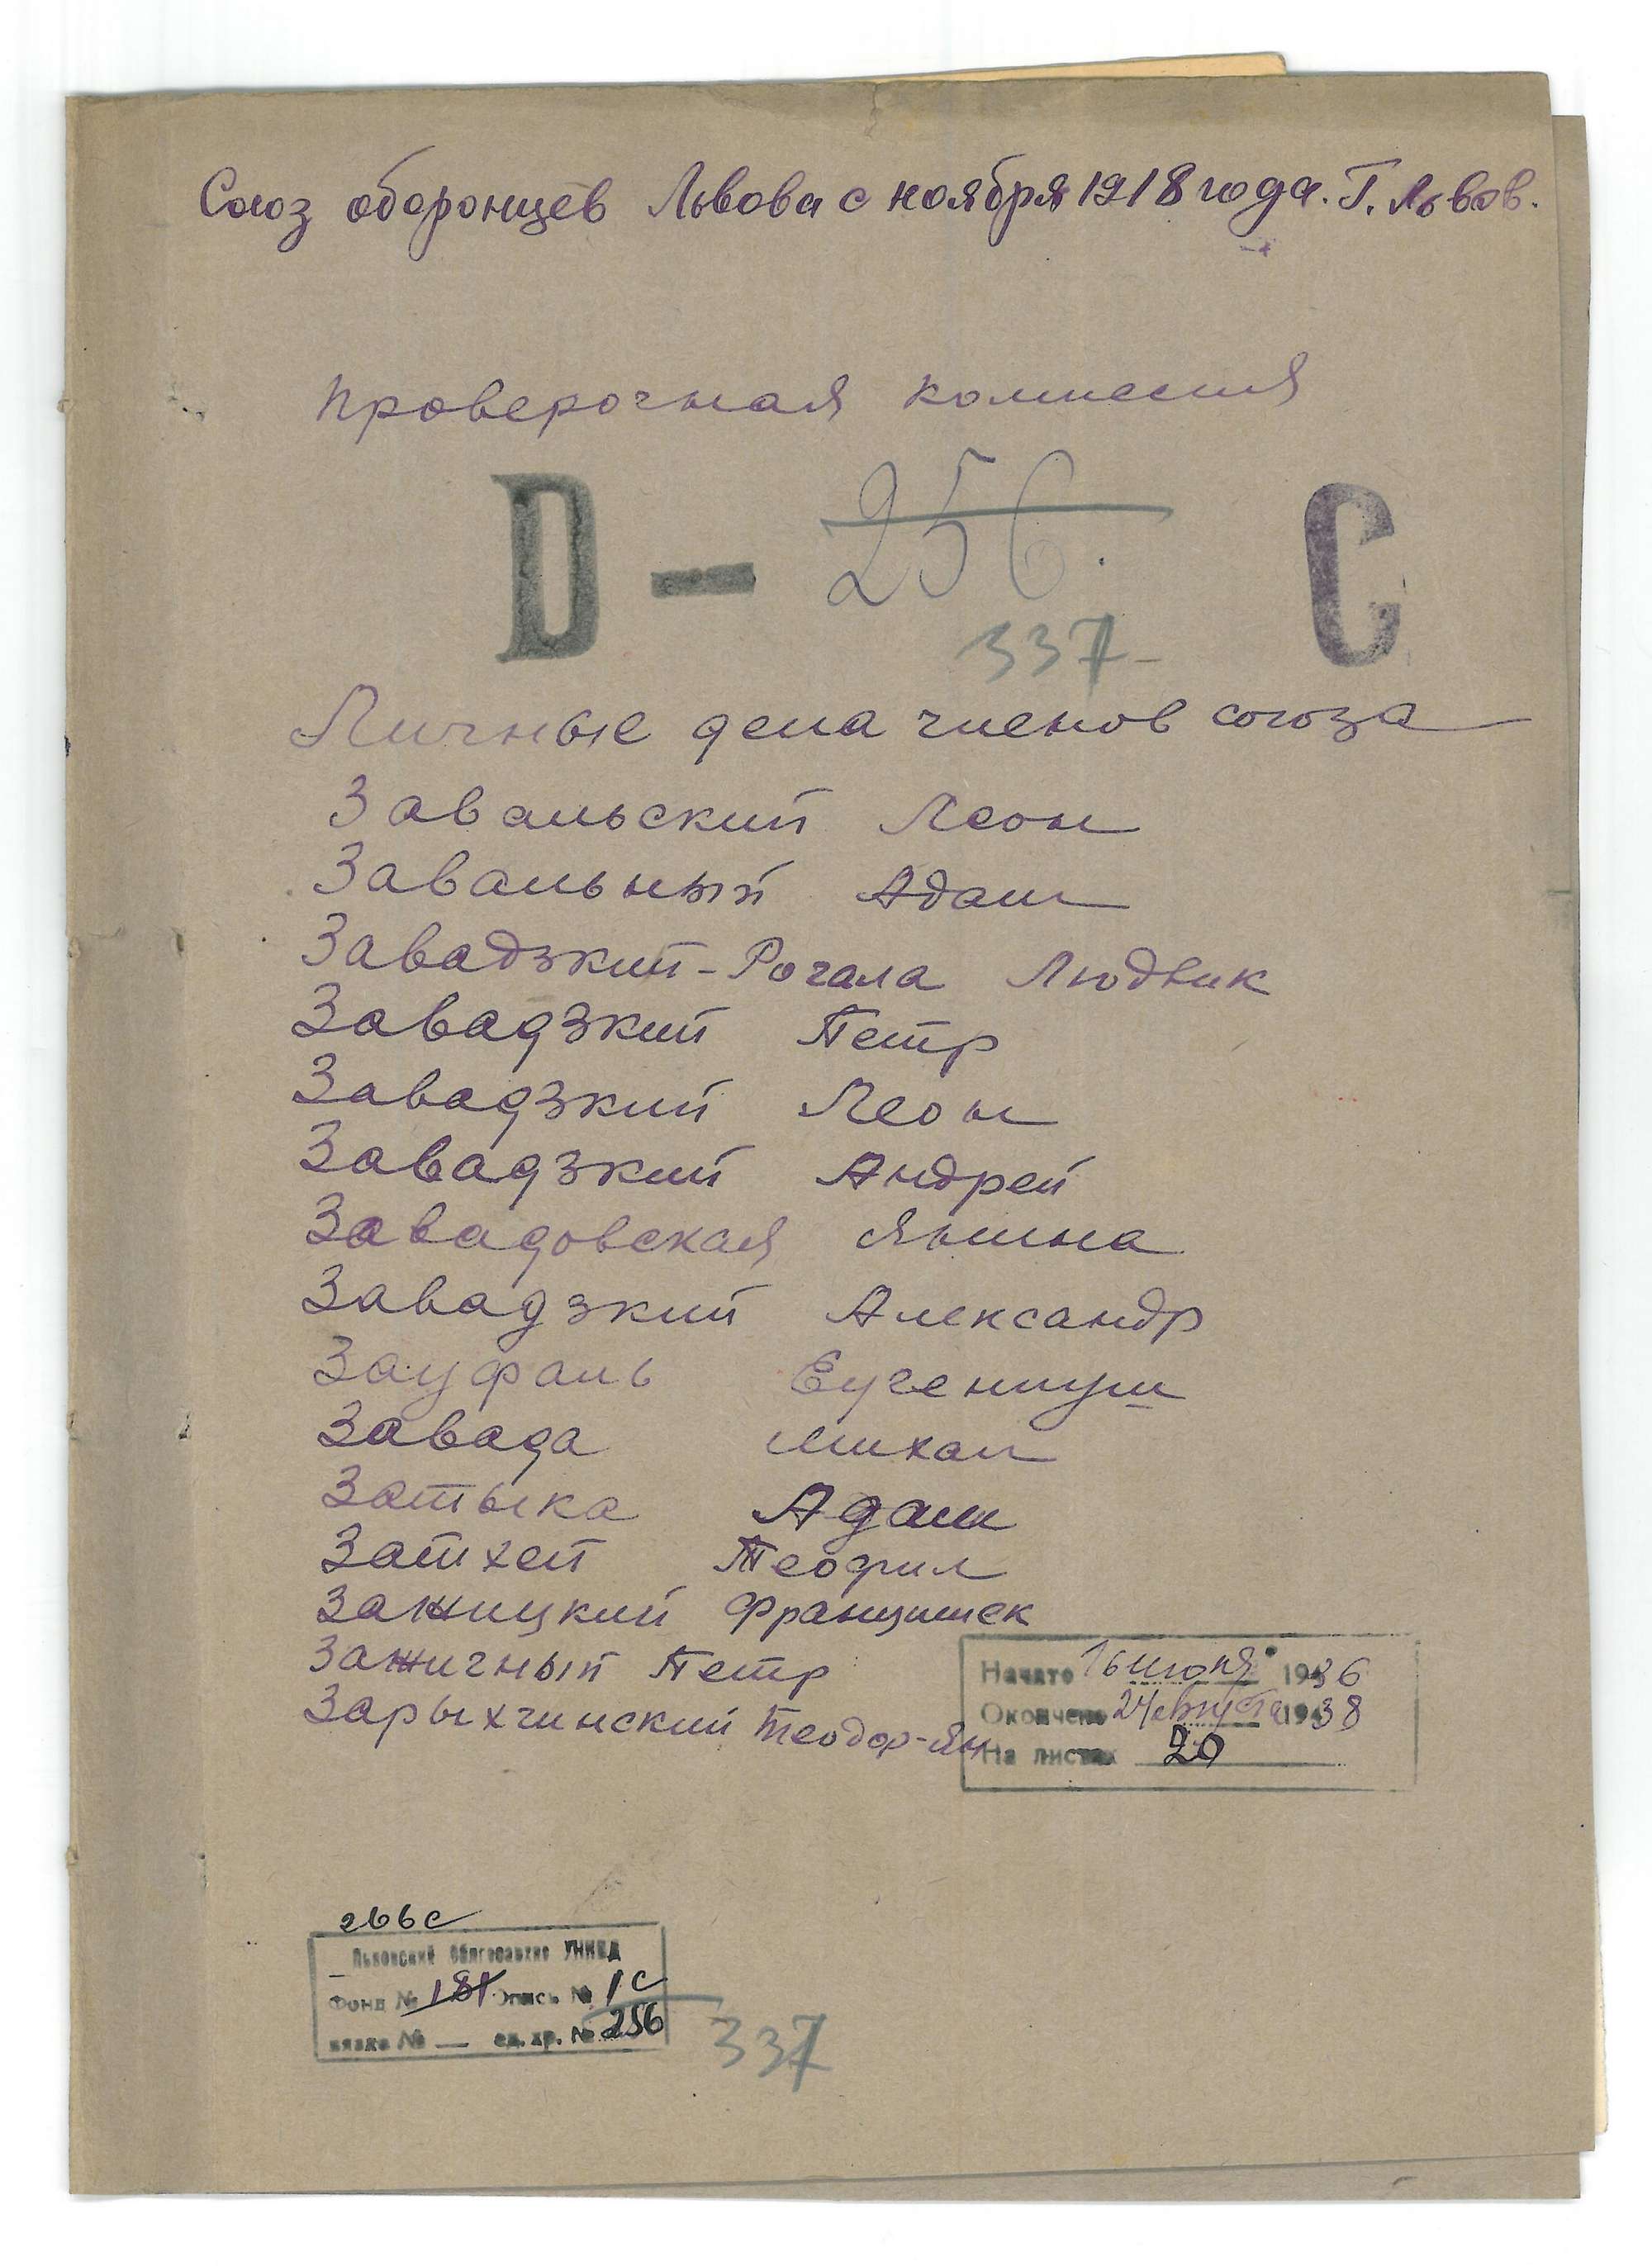 Союз оборонцев Львова с ноября 1918 года. Г. Львов.
Проверочная комиссия
D — 256. C
337
Личные дела членов союза
Завальский Леон
Завальный Адам
Завадзкий-Рогала Людвик
Завадзкий Петр
Завадзкий Леон
Завадзкий Андрей
Завадовская Янина
Завадзкий Александр
Зауфаль Еугениуш
Завада Михал
Затыка Адам
Затхей Теофил
Зажицкий Францишек
Зажичный Петр
Зарыхчинский Теодор-Ян
Начато 16 июня 1936
Окончено 24 августа 1938
На листах 20
266с
Львовский Облгосархив УНКВД
Фонд № 181 Опись № 1с
вязка № — ед. хр. № 256
337